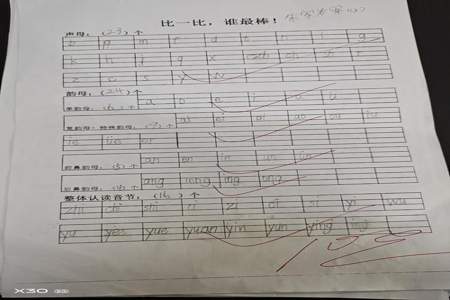 比一比，谁最棒！
声母：（23）个
b p m f d t n l g
k h j q x zh ch sh r
z c s y w
韵母：（24）个
单韵母：（6）个 a o e i u ü
复韵母：特殊韵母：（9）个 ai ei ui ao ou iu
ie üe er
前鼻韵母：（5）个 an en in un ün
后鼻韵母：（4）个 ang eng ing ong
整体认读音节：（16）个
zhi chi shi ri zi ci si yi wu
yu ye yue yuan yin yun ying
X30